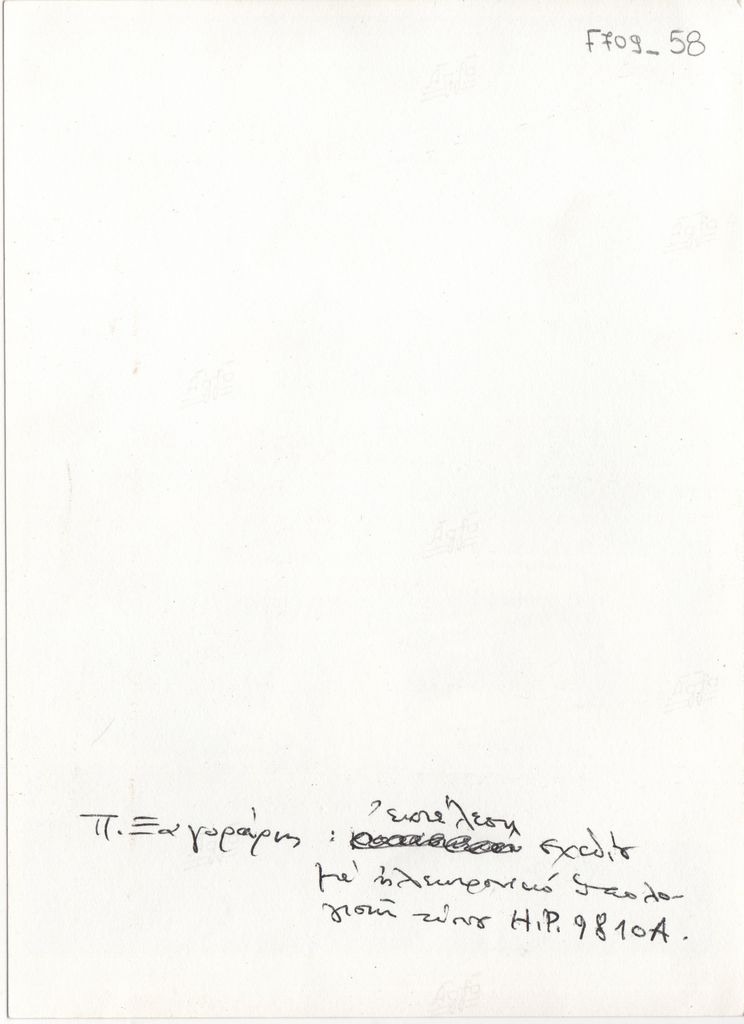 F709_58
Π. Ξαγοράρης : ἐκτέλεση σχεδίου
μέ ἠλεκτρονικό ὑπολο-
γιστή τύπου H.P. 9810A.